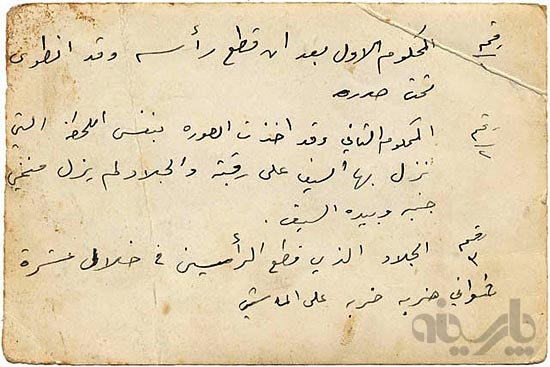 رقم ١ المحكوم الاول بعد ان قطع رأسه وقد انطوى
تحت صدره
رقم ٢ المحكوم الثاني وقد اخذت الصوره بنفس اللحظ التي
نزل بها السيف على رقبة والجلاد لم يزل منحني
جنبه وبيده السيف.
رقم ٣ الجلاد الذي قطع الرأسين في خلال عشرة
ثواني ضربه ضربه على
پارسینه